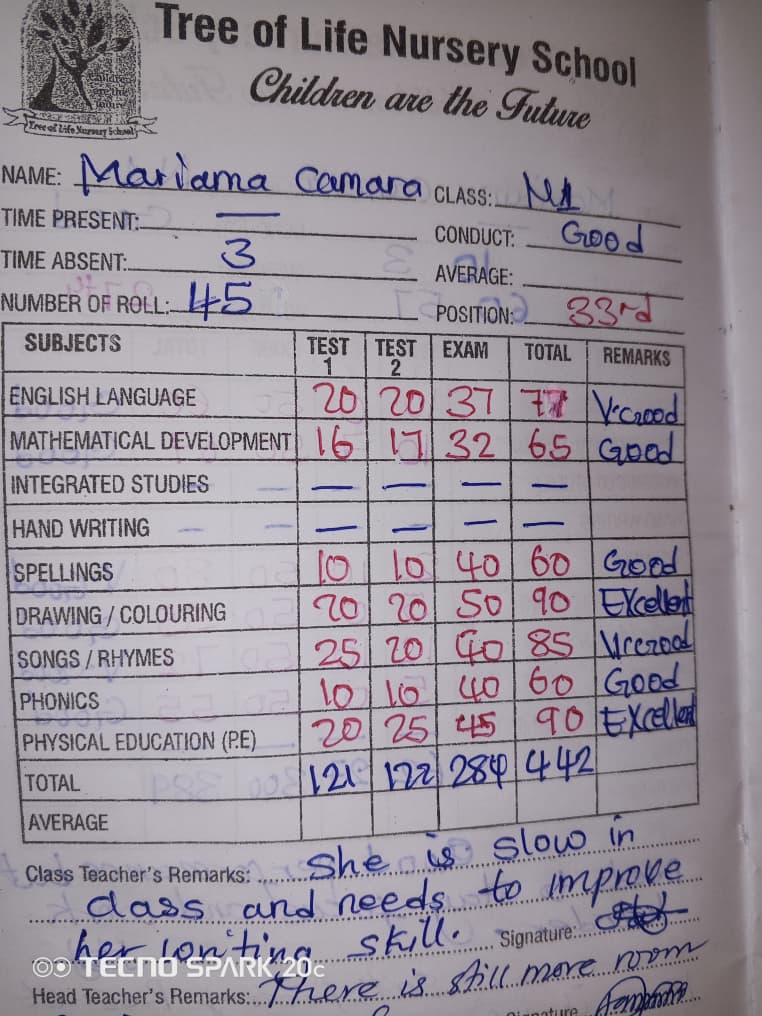 Children are the future
Tree of Life Nursery School
Tree of Life Nursery School
Children are the Future
NAME: Mariama Camara CLASS: N1
TIME PRESENT: — CONDUCT: Good
TIME ABSENT: 3 AVERAGE:
NUMBER OF ROLL: 45 POSITION: 33rd
SUBJECTS TEST 1 TEST 2 EXAM TOTAL REMARKS
ENGLISH LANGUAGE 20 20 37 77 V.Good
MATHEMATICAL DEVELOPMENT 16 17 32 65 Good
INTEGRATED STUDIES — — — —
HAND WRITING — — — —
SPELLINGS 10 10 40 60 Good
DRAWING / COLOURING 20 20 50 90 Excellent
SONGS / RHYMES 25 20 40 85 V.Good
PHONICS 10 10 40 60 Good
PHYSICAL EDUCATION (P.E) 20 25 45 90 Excellent
TOTAL 121 122 284 442
AVERAGE
Class Teacher's Remarks: She is slow in
class and needs to improve
her writing skill. Signature:
TECNO SPARK 20c
Head Teacher's Remarks: There is still more room
Signature